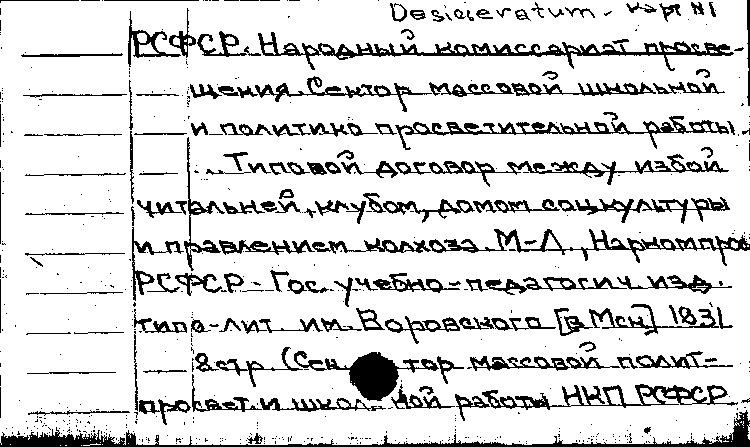 Desideratum - карт №1
РСФСР. Народный комиссариат просве-
щения. Сектор массовой школьной
и политико просветительной работы.
...Типовой договор между избой
читальней, клубом, домом соц.культуры
и правлением колхоза. М-Л., Наркомпрос
РСФСР - Гос. учебно-педагогич. изд.
типо-лит. им. Воровского [в Мск] 1931
8 стр. (Сектор массовой полит-
просвет и школьной работы НКП РСФСР